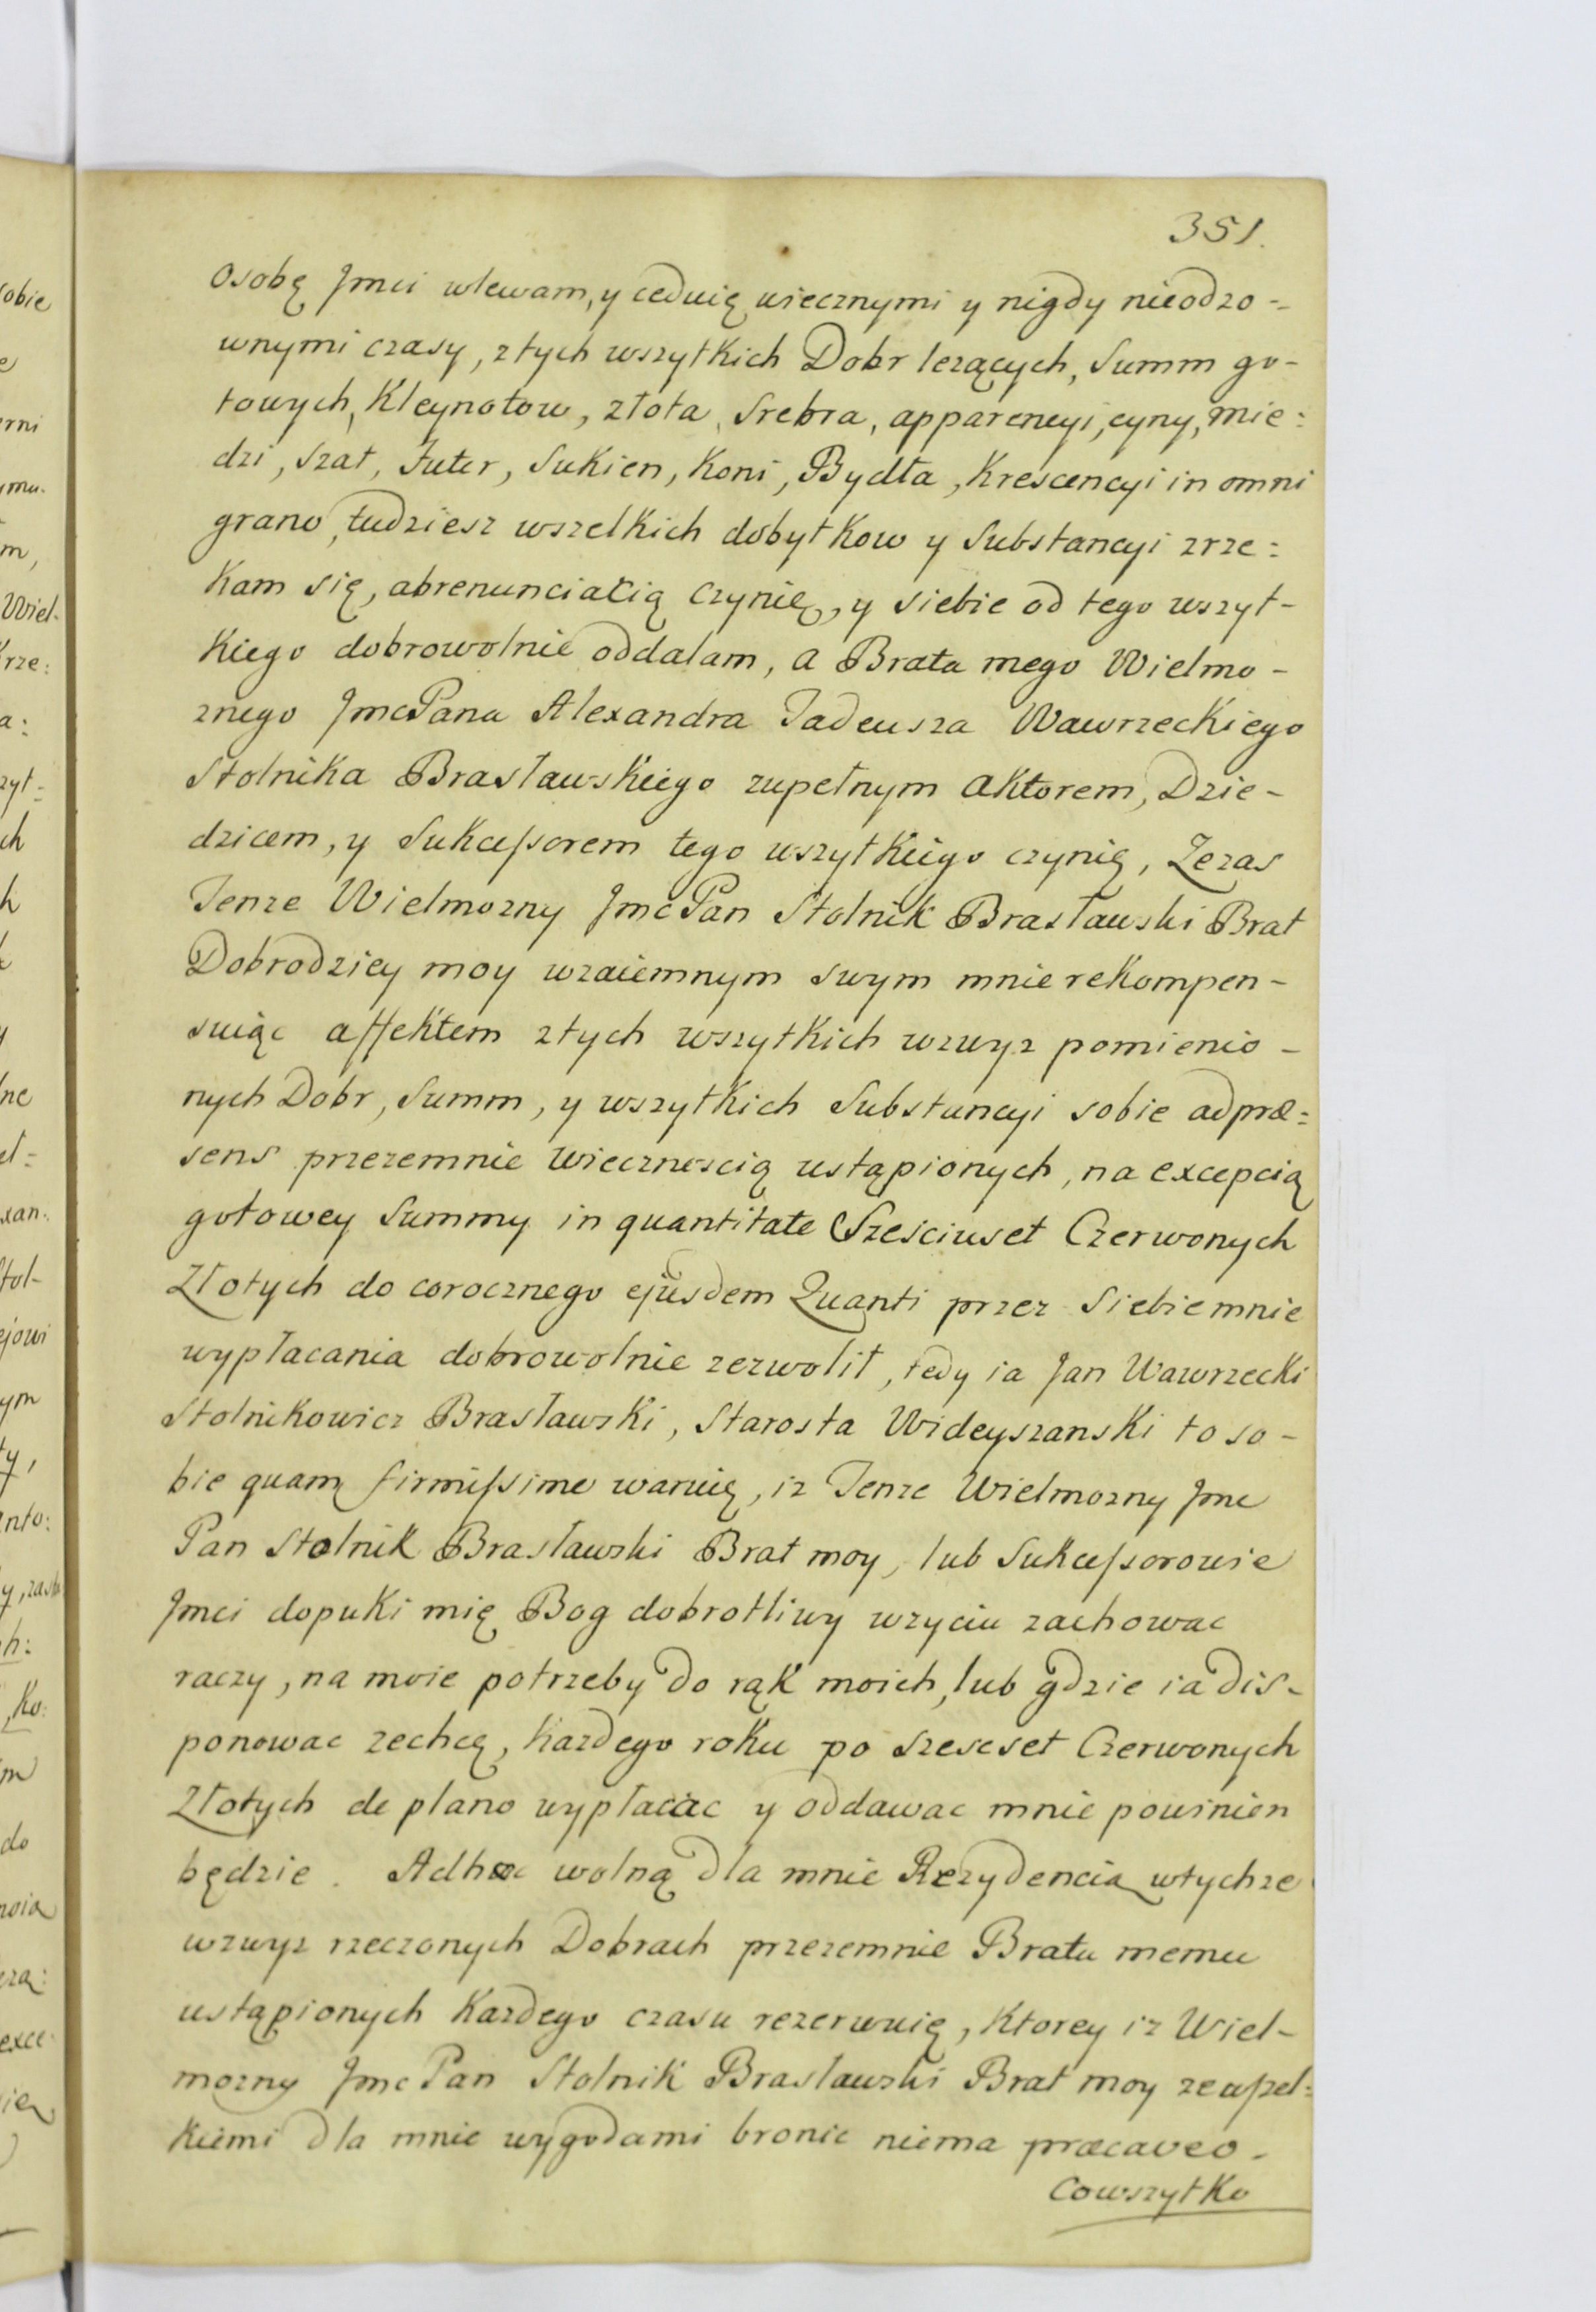 351.
Osobę Jmci wlewam, y ceduię wiecznymi y nigdy nieodzo-
wnymi czasy, z tych wszytkich Dobr lezących, Summ go-
towych, Kleynotow, złota, Srebra, apparencyi, cyny, mie:
dzi, szat, Futer, Sukien, Koni, Bydła, Krescencyi in omni
grano, tudziesz wszelkich dobytkow y Substancyi zrze:
kam się, abrenunciatią czynię, y siebie od tego wszyt-
kiego dobrowolnie oddalam, a Brata mego Wielmo-
znego JmcPana Alexandra Tadeusza Wawrzeckiego
Stolnika Brasławskiego zupełnym aktorem, Dzie-
dzicem, y Sukcessorem tego wszytkiego czynię, Zezas
Tenze Wielmozny JmcPan Stolnik Brasławski Brat
Dobrodziey moy wzaiemnym swym mnie rekompen-
suiąc affektem z tych wszytkich wzwyz pomienio-
nych Dobr, Summ, y wszytkich Substancyi sobie adpræ:
sens przezemnie wiecznoscią ustąpionych, na excepcią
gotowey Summy in quantitate Szesciuset Czerwonych
Złotych do corocznego ejusdem Quanti przez Siebie mnie
wypłacania dobrowolnie zezwolił, tedy ia Jan Wawrzecki
Stolnikowicz Brasławski, Starosta Wideyszanski to so-
bie quam firmissime waruię, iz Tenze Wielmozny Jmc
Pan Stolnik Brasławski Brat moy, lub Sukcessorowie
Jmci dopuki mię Bog dobrotliwy wzyciu zachowac
raczy, na moie potrzeby do rąk moich, lub gdzie ia dis-
ponowac zechcę, kazdego roku po szescset Czerwonych
Złotych de plano wypłacac y oddawac mnie powinien
będzie. Adhæc wolną dla mnie Rezydencią wtychze
wzwyz rzeczonych Dobrach przezemnie Bratu memu
ustąpionych Kazdego czasu rezerwuię, Ktorey iz Wiel-
mozny JmcPan Stolnik Braslawski Brat moy zewszel:
kiemi dla mnie wygodami bronic niema præcaveo.
Cowszytko